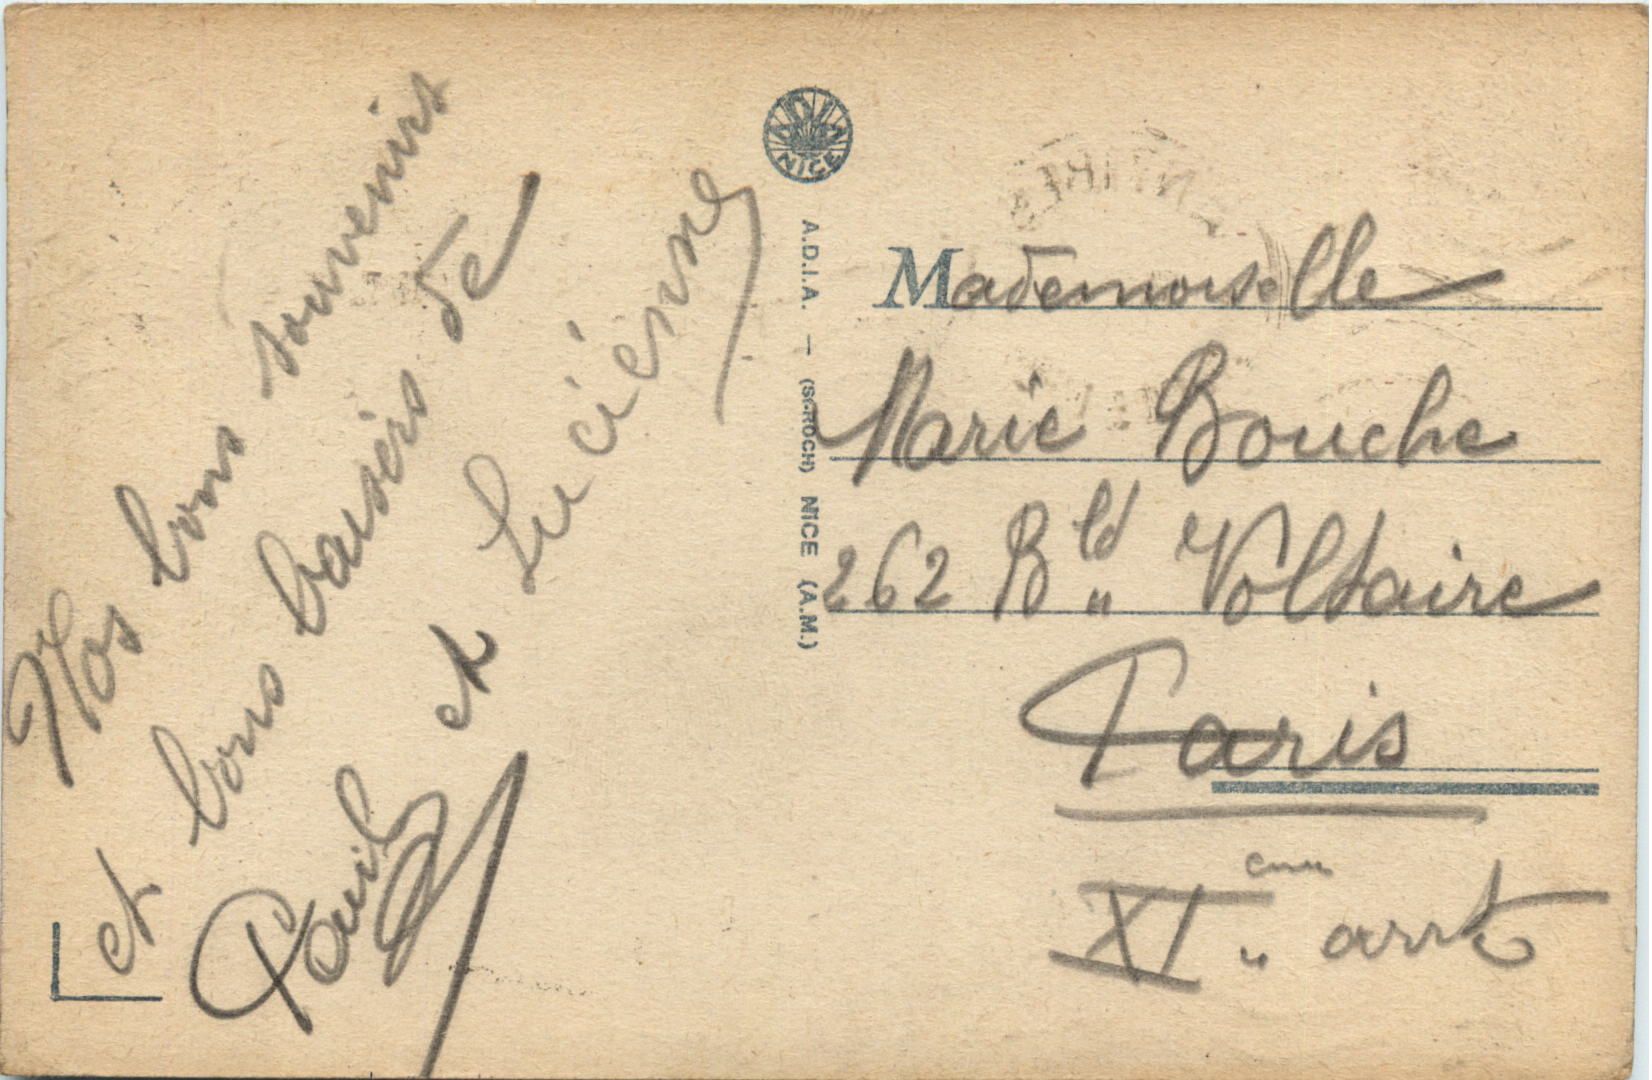 Nos bons souvenirs
et bons baisers de
et Luciénne
ADIA
NICE
A.D.I.A. — (SCROCH) NICE (A.M.)
Mademoiselle
Marie Bouche
262 Bld Voltaire
Paris
XIeme arrt